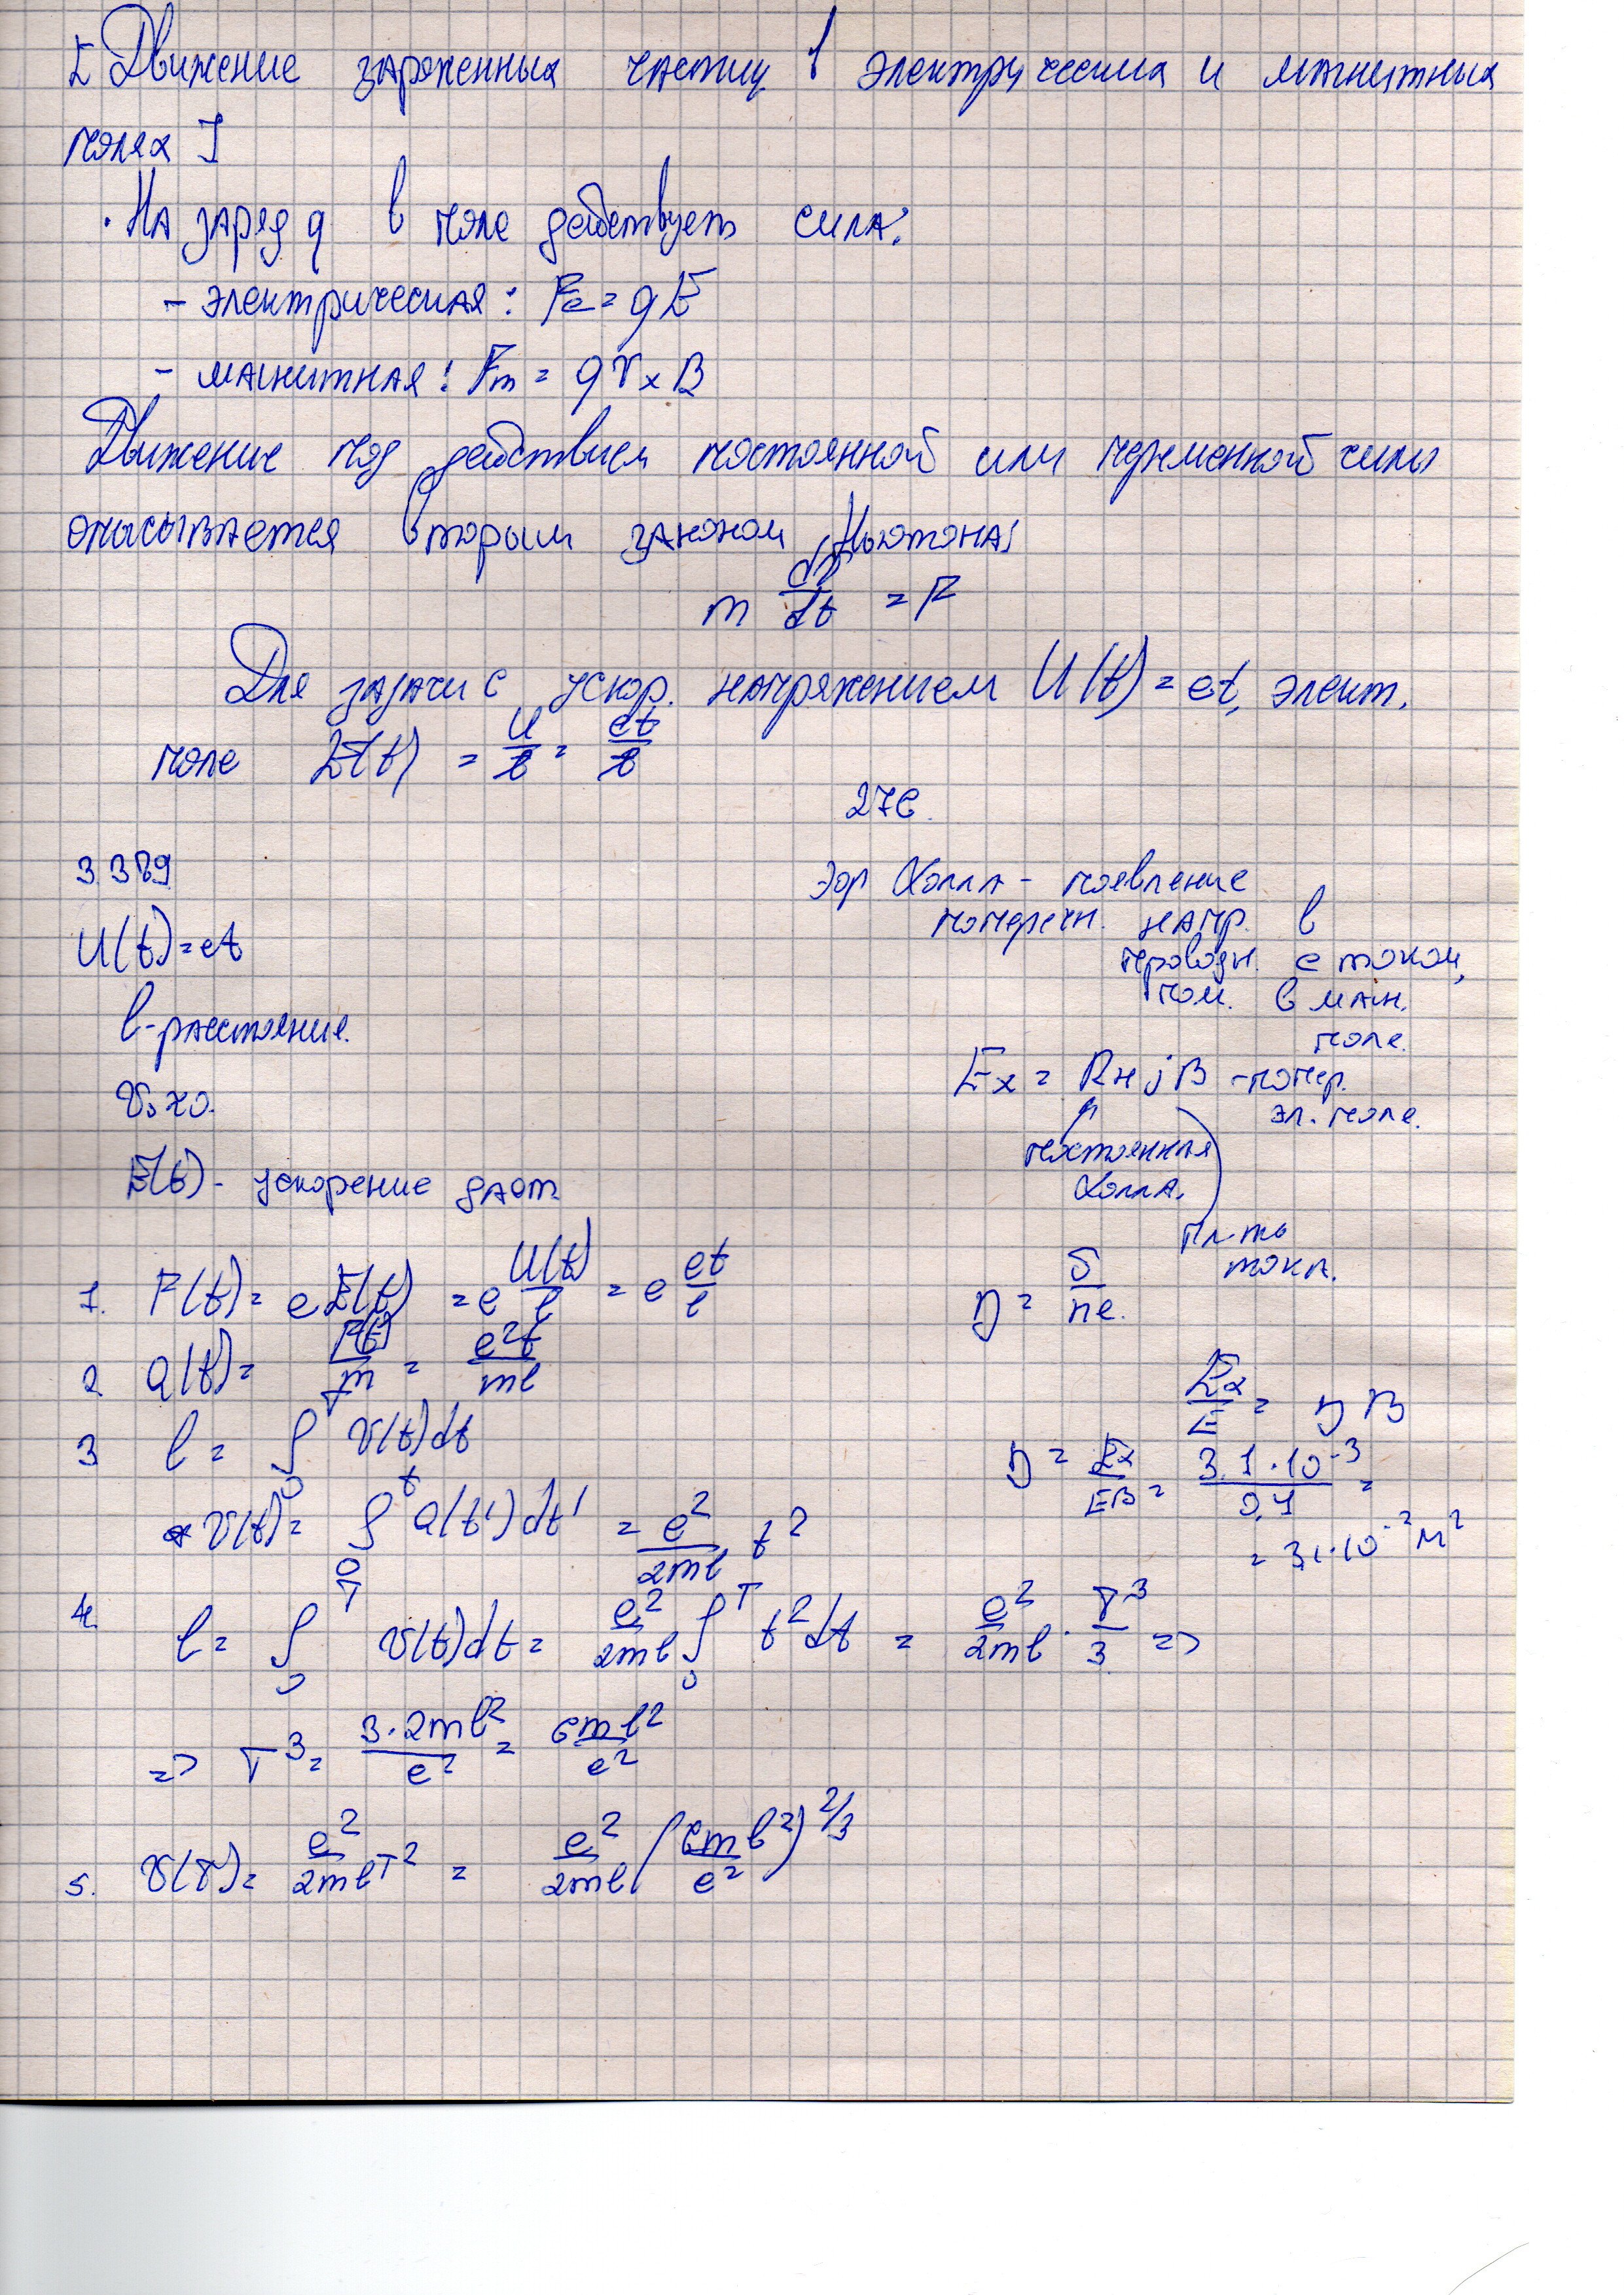 Σ Движение заряженных частиц в электрических и магнитных
полях I
· На заряд q в поле действует сила:
- электрическая: Fe = qE
- магнитная: Fm = qv×B
Движение под действием постоянной или переменной силы
описывается вторым законом Ньютона:
m dv/dt = F
Для задачи с ускор. напряжением U(t) = et, элект.
поле E(t) = U/ℓ = et/ℓ
276.
3.389
U(t) = et
ℓ - расстояние.
v₀ = 0.
E(t) - ускорение дает
1. F(t) = eE(t) = e U(t)/ℓ = e et/ℓ
2 a(t) = F(t)/m = e²t/mℓ
3 ℓ = ∫₀ᵀ v(t)dt
* v(t) = ∫₀ᵗ a(t')dt' = e²/2mℓ t²
4. ℓ = ∫₀ᵀ v(t)dt = e²/2mℓ ∫₀ᵀ t²dt = e²/2mℓ · T³/3 =>
=> T³ = 3·2mℓ²/e² = 6mℓ²/e²
5. v(T) = e²/2mℓ T² = e²/2mℓ (6mℓ²/e²)^2/3
Эф Холла - появление
поперечн. напр. в
проводн. с током,
пом. в магн.
поле.
Ex = RнjB - попер.
эл. поле.
постоянная
Холла.
пл-ть
тока.
η = σ/ne.
Ex/E = ηB
η = Ex/EB = 3.1·10⁻³/0,1 =
= 3,1·10⁻² м²